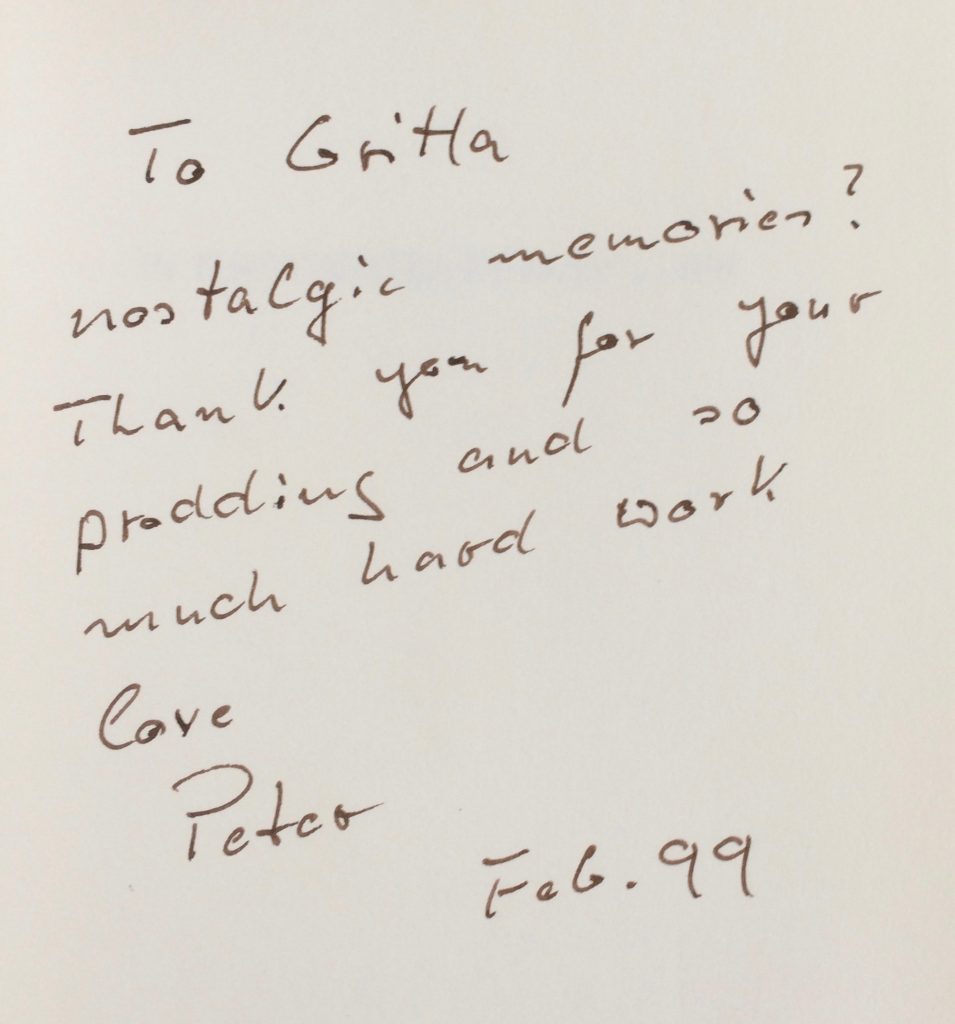 To Gritta
nostalgic memories?
Thank you for your
prodding and so
much hard work
Love
Peter
Feb. 99